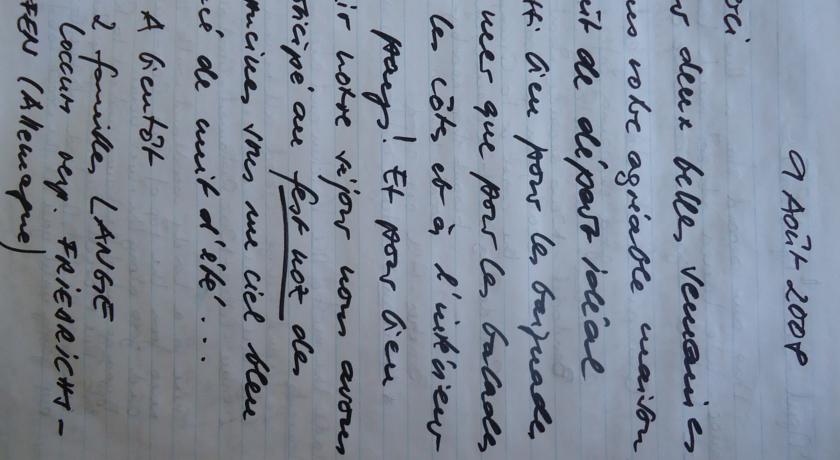 9 Août 2008
rci
r deux belles semaines
ns votre agréable maison
it de départ idéal
ssi bien pour les baignades
mer que pour les balades
les côtes et à l'intérieur
pays! Et pour bien
ir notre séjour nous avons
ticipé au fest noz des
ucines, sous une ciel bleu
cé de nuit d'été...
A bientôt
2 familles LANGE
Loccum resp. FRIEDRICHS-
FEN (Allemagne)